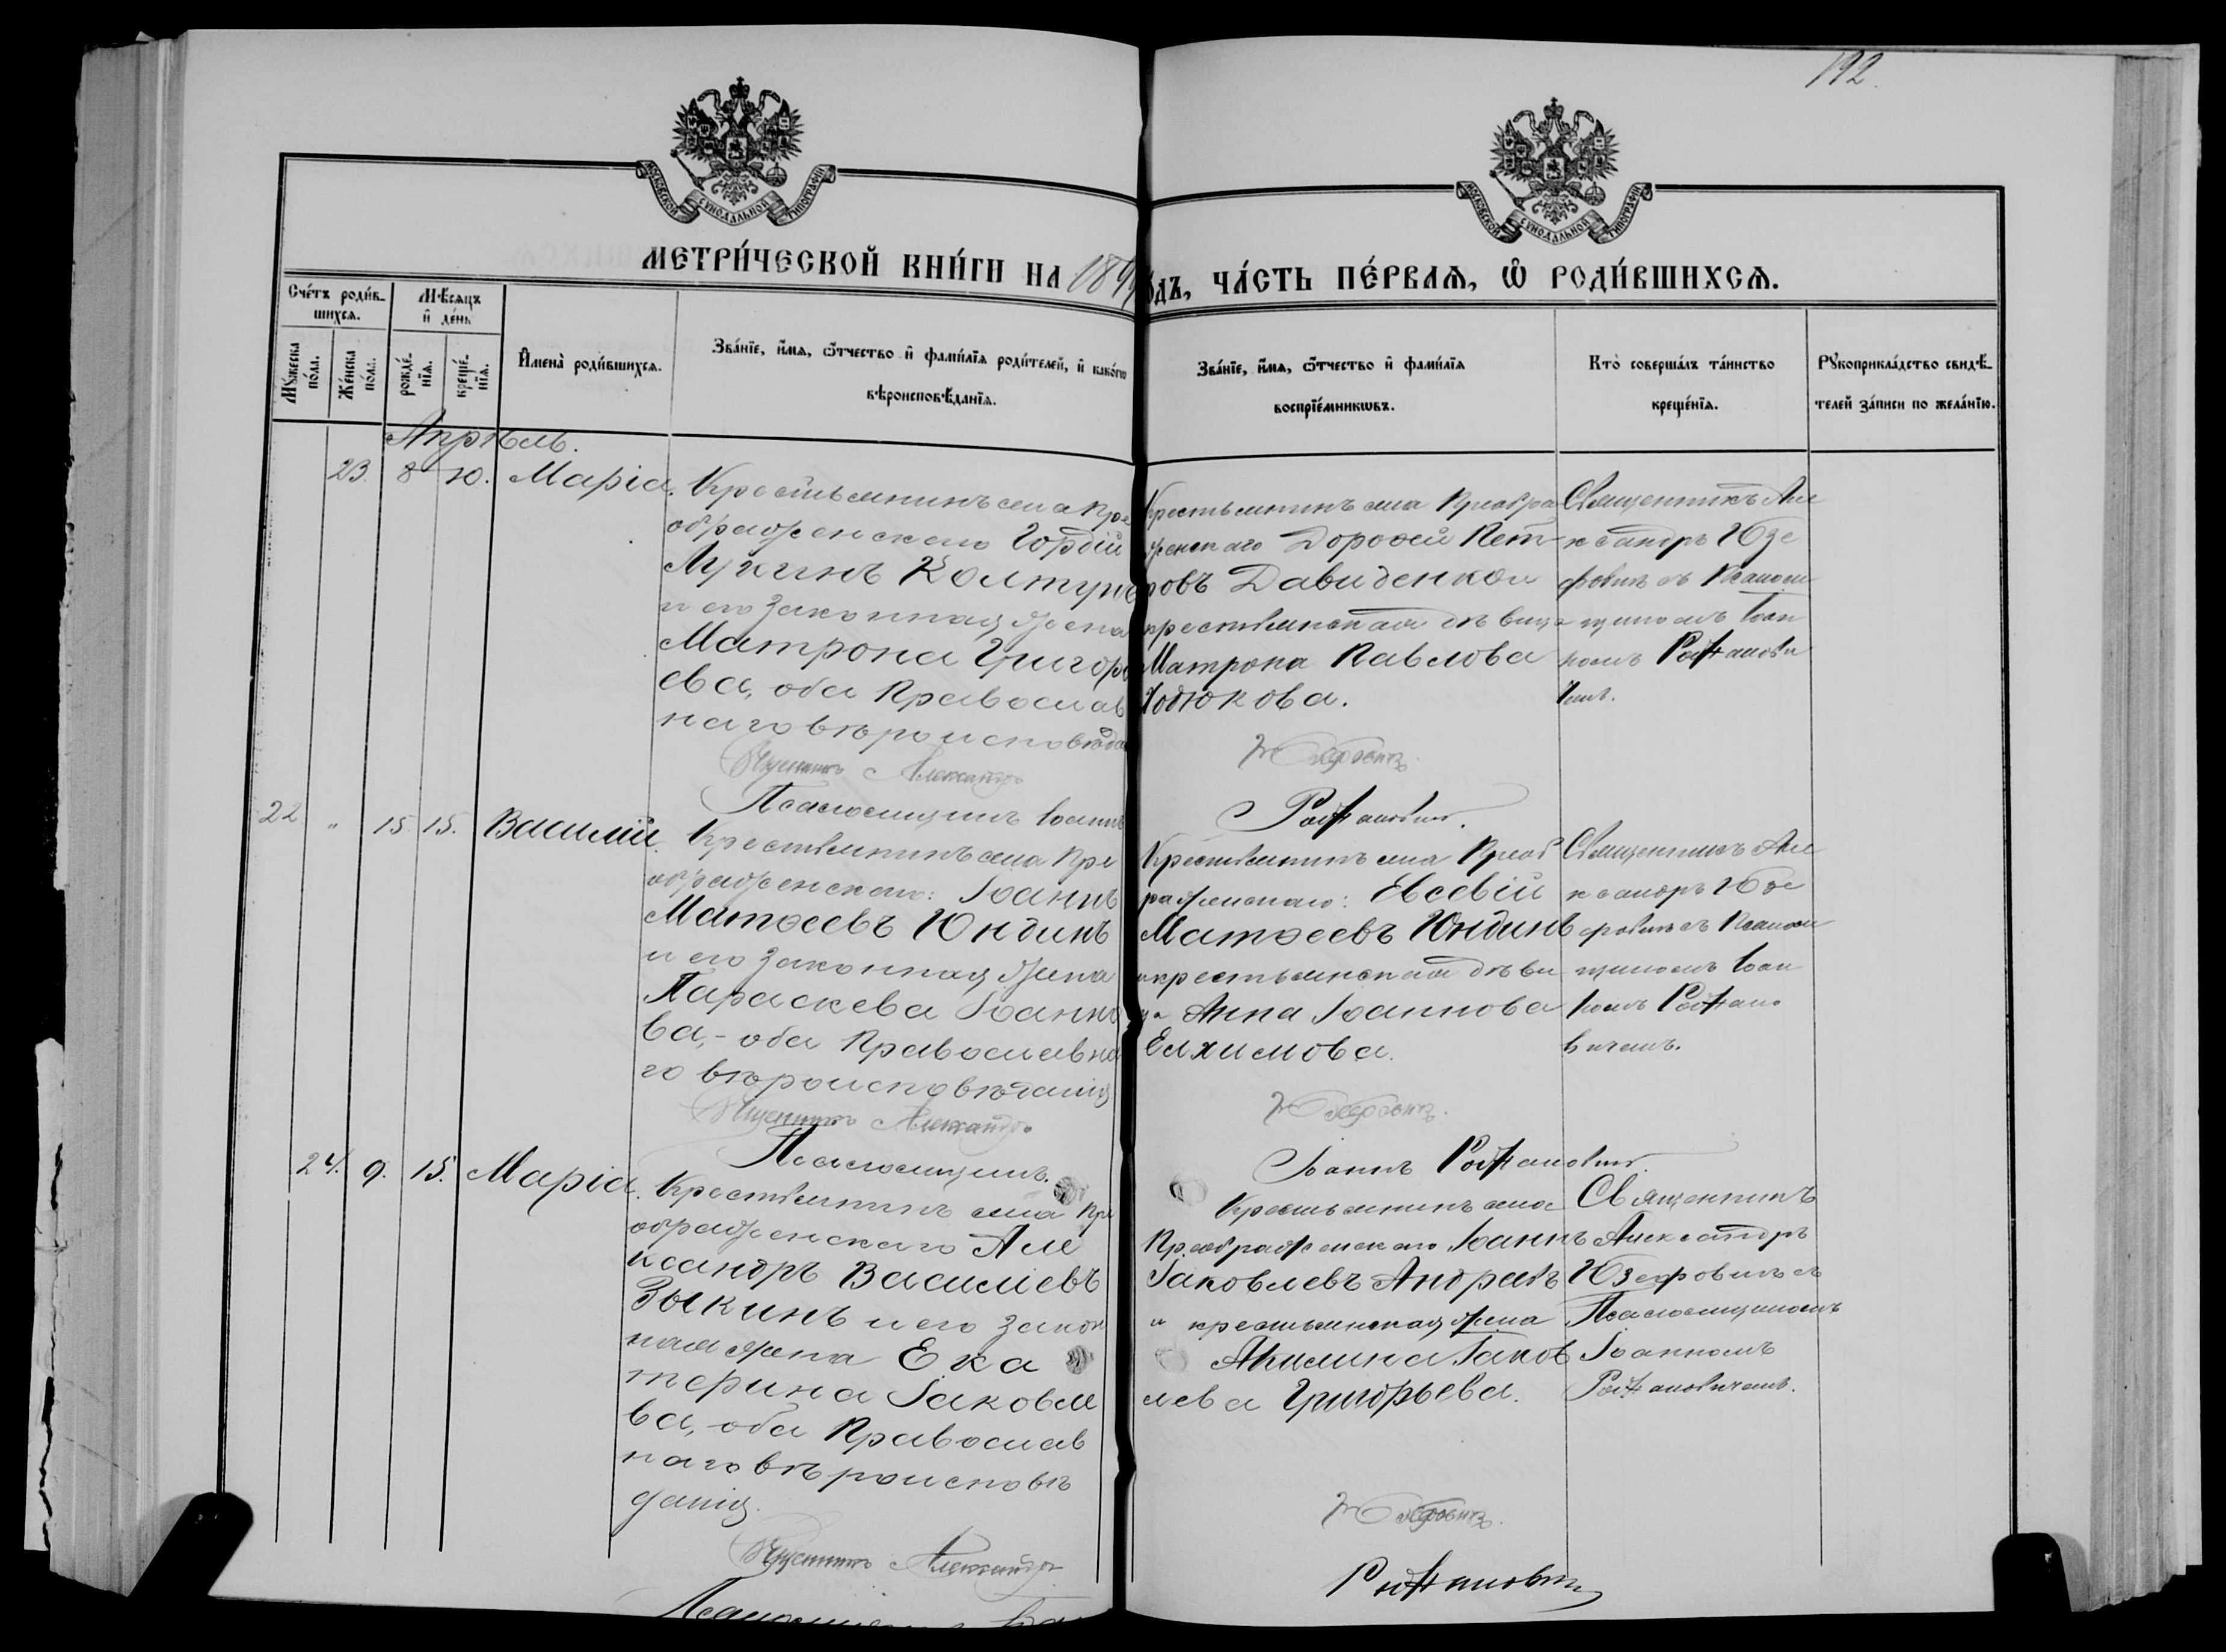 192.
МОСКОВСКОЙ СѴНОДАЛЬНОЙ ТИПОГРАФІИ
МОСКОВСКОЙ СѴНОДАЛЬНОЙ ТИПОГРАФІИ
МЕТРИ́ЧЕСКОЙ КНИ́ГИ НА 189
одъ, ЧА́СТЬ ПЕ́РВАѦ, Ѡ҆ РОДИ́ВШИХСѦ.
Сче́тъ роди́в-
шихсѧ.
Мѣ́сѧцъ
и҆ де́нь
Мꙋ́жеска
по́ла.
Же́нска
по́ла.
рожде́-
нїѧ.
креще́-
нїѧ.
И҆мена̀ роди́вшихсѧ.
Зва́нїе, и҆́мѧ, ѻ҆́тчество и҆ фами́лїѧ роди́телей, и҆ како́гѡ
вѣроисповѣ́данїѧ.
Зва́нїе, и҆́мѧ, ѻ҆́тчество и҆ фами́лїѧ
воспрїе́мникѡвъ.
Кто̀ соверша́лъ та́инство
креще́нїѧ.
Рꙋкоприкла́дство свидѣ́-
телей за́писи по жела́нїю.
Апрѣль.
23. 8 10. Марія.
Крестьянинъ села Пре
ображенскаго Гордій
Лукинъ Колтуно
и его законная жена
Матрона Григорь
ева, оба Православ
наго вѣроисповѣда
Священникъ Александръ
Псаломщикъ Іоаннъ
Крестьянинъ села Преобра
женскаго Дорофей Пет-
ровъ Давиденков
крестьянская дѣвица
Матрона Павлова
Ходюкова.
Юзефовичъ.
Рожановичъ.
Священникъ Але
ксандръ Юзе
фовичъ съ Псалом
щикомъ Іоан
номъ Рожанови
чемъ.
22 " 15. 15. Василій.
Крестьянинъ села Пре
ображенскаго: Іоаннъ
Матѳеевъ Юндинъ
и его законная жена
Параскева Іоанно
ва,- оба Православна
го вѣроисповѣданія
Священникъ Александръ
Псаломщикъ.
Крестьянинъ села Преоб
раженскаго: Евсевій
Матѳеевъ Юндинъ
и крестьянская дѣви
ца Анна Іоаннова
Елхимова.
Юзефовичъ.
Іоаннъ Рожановичъ.
Священникъ Але
ксандръ Юзе
фовичъ съ Псалом
щикомъ Іоан
номъ Рожано
вичемъ.
24. 9. 15. Марія.
Крестьянинъ села Пре
ображенскаго Але
ксандръ Василіевъ
Зыкинъ и его закон
ная жена Ека
терина Іаковле
ва, оба Православ
наго вѣроисповѣ
данія.
Священникъ Александръ
Псаломщикъ
Крестьянинъ села
Преображенскаго Іоаннъ
Іаковлевъ
и крестьянская жена
Акилина Іаков
лева Григорьева.
Юзефовичъ.
Рожановичъ
Священникъ
Александръ
Юзефовичъ съ
Псаломщикомъ
Іоанномъ
Рожановичемъ.